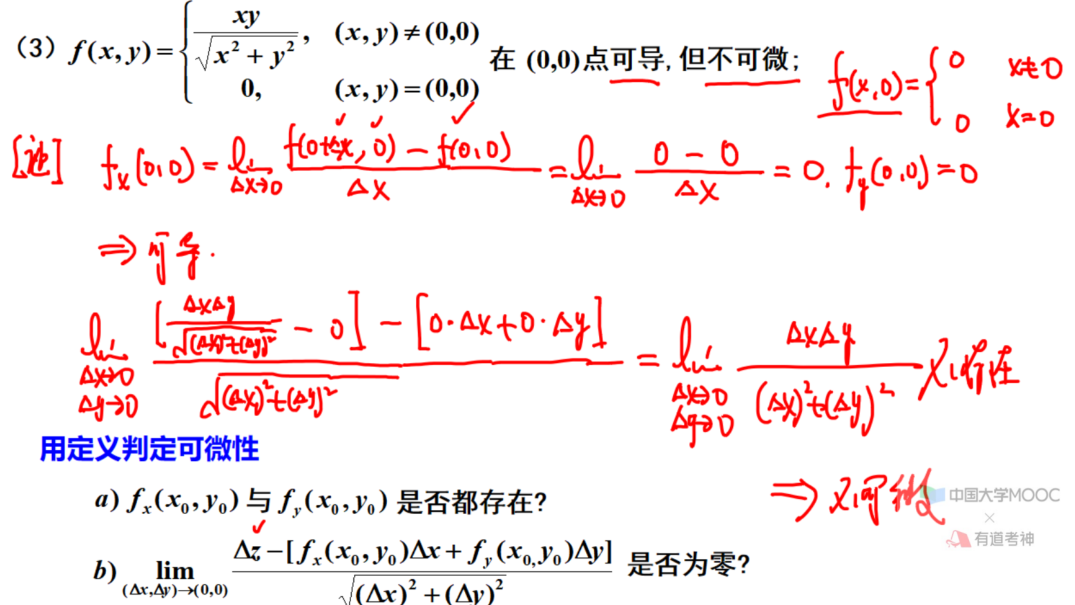 (3) f(x,y)={ xy/√(x²+y²), (x,y)≠(0,0)
0, (x,y)=(0,0) 在 (0,0)点可导,但不可微;
f(x,0)={ 0 x≠0
0 x=0
[证] fₓ(0,0)=lim Δx→0 (f(0+Δx,0)-f(0,0))/Δx = lim Δx→0 (0-0)/Δx = 0. f_y(0,0)=0
⇒可导.
lim Δx→0 Δy→0 ([ΔxΔy/√((Δx)²+(Δy)²) - 0] - [0·Δx+0·Δy])/√((Δx)²+(Δy)²) = lim Δx→0 Δy→0 ΔxΔy/((Δx)²+(Δy)²) 不存在
用定义判定可微性
⇒不可微
a) fₓ(x₀,y₀)与 f_y(x₀,y₀) 是否都存在?
中国大学MOOC
×
有道考神
b) lim (Δx,Δy)→(0,0) (Δz-[fₓ(x₀,y₀)Δx+f_y(x₀,y₀)Δy])/√((Δx)²+(Δy)²) 是否为零?